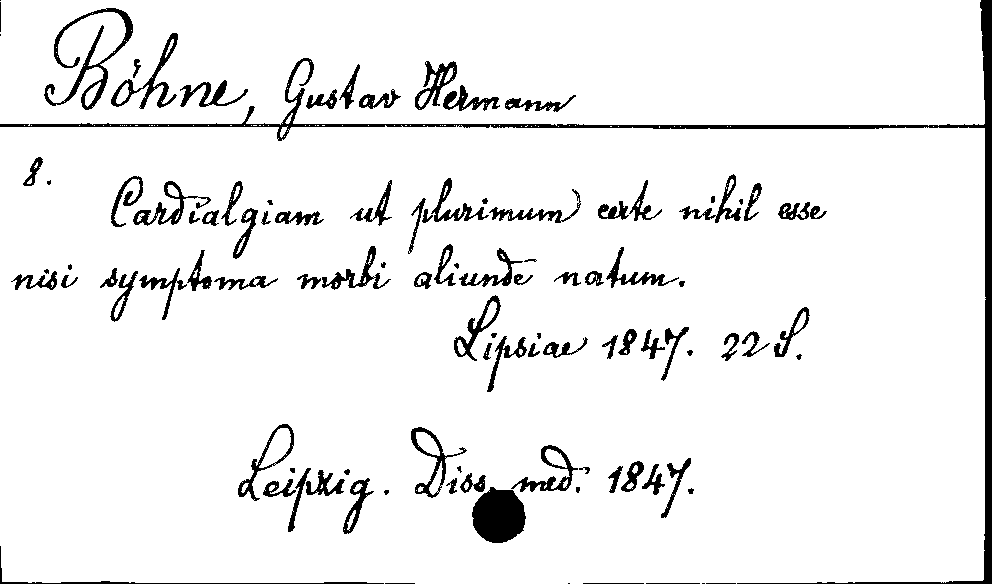 Böhne, Gustav Hermann
8.
Cardialgiam ut plurimum certe nihil esse
nisi symptoma morbi aliunde natum.
Lipsiae 1847. 22 S.
Leipzig. Diss. med. 1847.